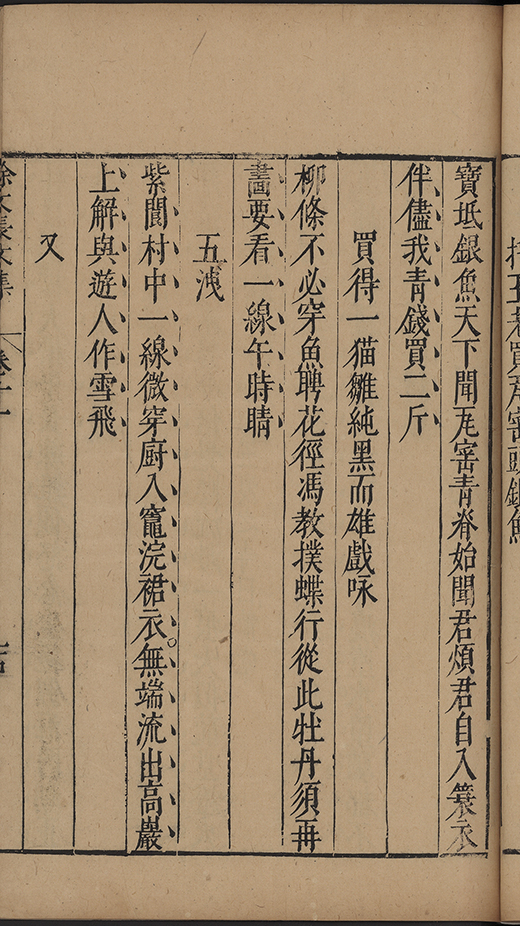 寶坻銀魚天下聞瓦窰青脊始聞君煩君自入簑衣
伴儘我青錢買二斤
買得一猫雛純黑而雄戲咏
柳條不必穿魚聘花徑馮教撲蝶行從此牡丹須再
畵要看一線午時晴
五洩
紫閬村中一線微穿廚入竈浣裙衣無端流出高巖
上解與遊人作雪飛
又
徐文長文集 卷十二